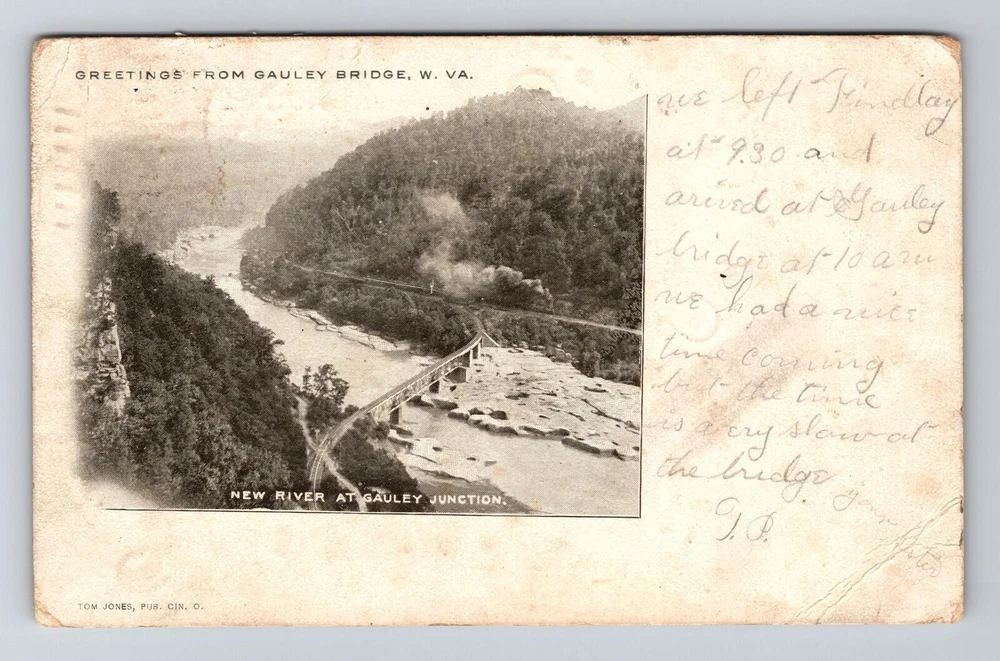 GREETINGS FROM GAULEY BRIDGE, W. VA.
we left Findlay
at 9.30 and
arived at Gauley
bridge at 10 am
we had a nice
time coming
but the time
is very slow at
the bridge
T.P.
NEW RIVER AT GAULEY JUNCTION.
TOM JONES, PUB. CIN. O.